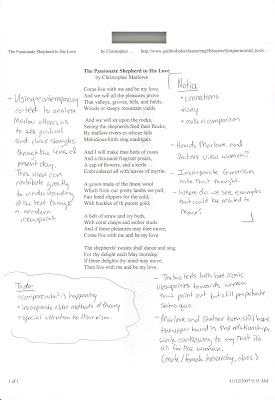 The Passionate Shepherd to His Love
by Christopher ...
The Passionate Shepherd to His Love
by Christopher Marlowe
Come live with me and be my love,
And we will all the pleasures prove
That valleys, groves, hills, and fields,
Woods or steepy mountain yields.
And we will sit upon the rocks,
Seeing the shepherds feed their flocks,
By shallow rivers to whose falls
Melodious birds sing madrigals.
And I will make thee beds of roses
And a thousand fragrant posies,
A cap of flowers, and a kirtle
Embroidered all with leaves of myrtle.
A gown made of the finest wool
Which from our pretty lambs we pull,
Fair lined slippers for the cold,
With buckles of th purest gold.
A belt of straw and ivy buds,
With coral clasps and amber studs:
And if these pleasures may thee move,
Come live with me and be my love.
The shepherds' swains shall dance and sing
For thy delight each May morning:
If these delights thy mind may move,
Then live with me and be my love.
- Using contemporary
context to analyze
Marlow allows us
to see political
and class struggles
through the lens of
present day.
This view can
contribute greatly
to understanding
of the text through
a modern
viewpoint
To do:
• compare what is happening
• incorporate older methods of theory
• special attention to Marxism.
Notice:
• connections
• irony
• make a comparison
- How do Marlow and
Shatner view women?
- Incorporate feminism
into that thought.
- Where do we see examples
that could be related to
Marx?
- The two texts both have ironic
viewpoints towards women
that point out but still perpetuate
- Marlow and Shatner both still have
the upper hand in the relationships
while continuing to say that its
all for the woman.
(male/female hierarchy, class)
1 of 1
11/12/2007 9:15 AM